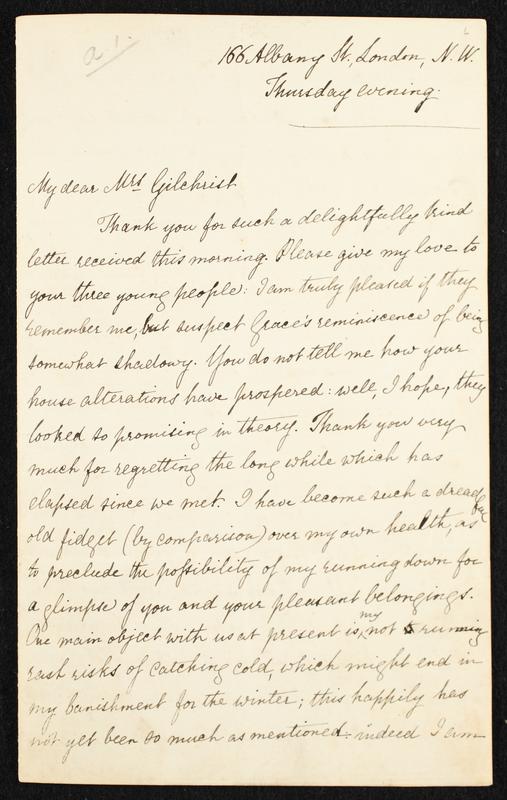 a 1.
166 Albany St., London, N. W.
Thursday evening.
My dear Mrs Gilchrist
Thank you for such a delightfully kind
letter received this morning. Please give my love to
your three young people: I am truly pleased if they
remember me, but suspect Grace's reminiscence of being
somewhat shadowy. You do not tell me how your
house alterations have prospered: well, I hope, they
looked so promising in theory. Thank you very
much for regretting the long while which has
elapsed since we met. I have become such a dreadful
old fidget (by comparison) over my own health, as
to preclude the possibility of my running down for
a glimpse of you and your pleasant belongings.
One main object with us at present is my not running
rash risks of catching cold, which might end in
my banishment for the winter; this happily has
not yet been so much as mentioned: indeed I am